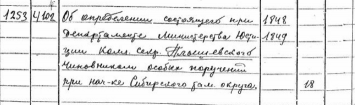 1253 4102 Об определении состоящего при 1848
Департаменте Министерства Юсти- 1849
ции Колл. секр. Плошевского
Чиновником особых поручений
при нач-ке Сибирского там. округа. 18